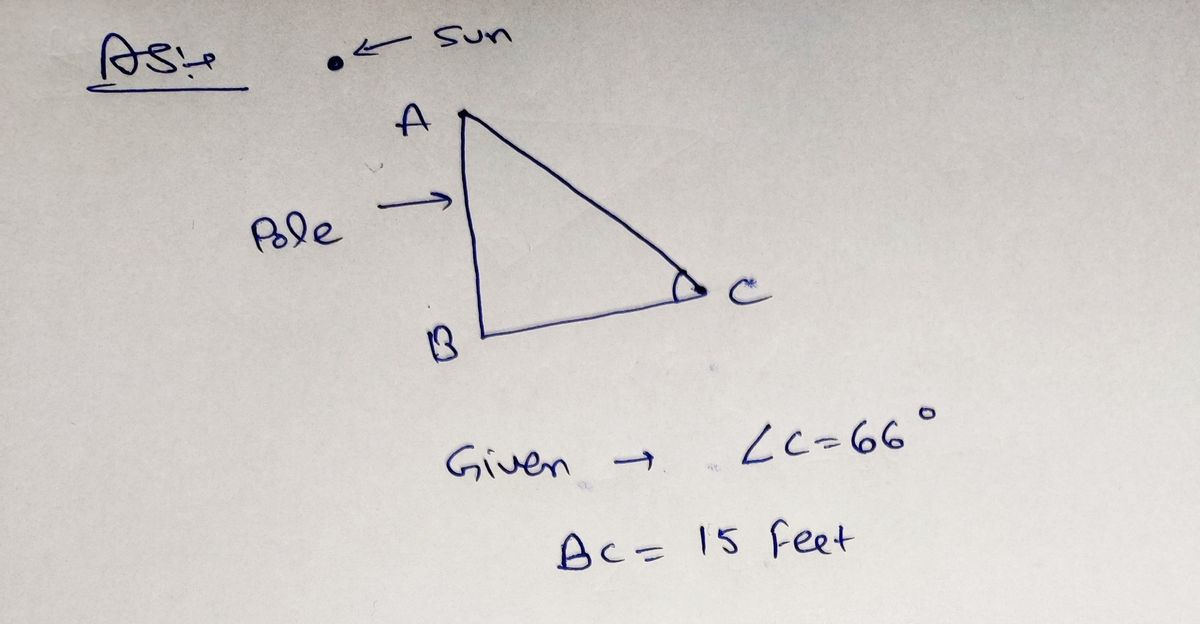 AS:→
← Sun
A
Pole →
C
B
Given → ∠C=66°
BC= 15 feet